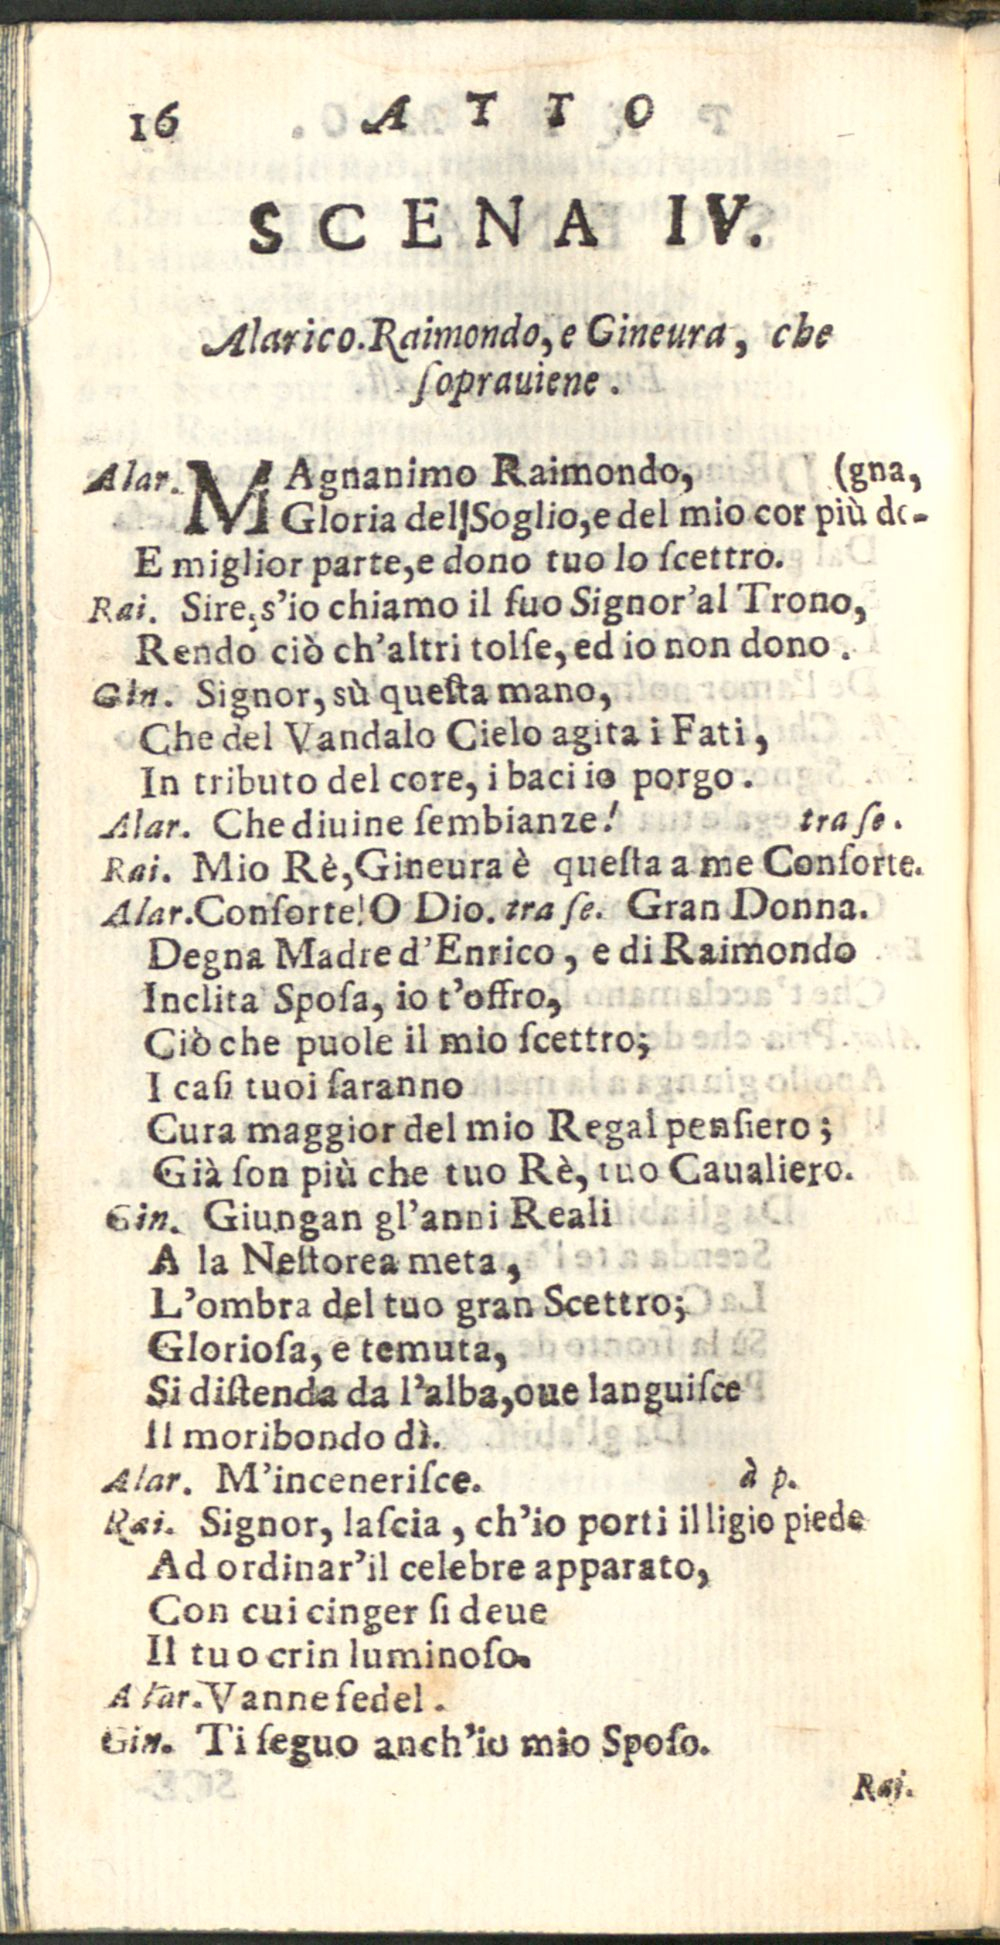 16 ATTO
SCENA IV.
Alarico. Raimondo, e Gineura, che
ſoprauiene.
Alar. MAgnanimo Raimondo, (gna,
Gloria del Soglio, e del mio cor più de-
E miglior parte, e dono tuo lo ſcettro.
Rai. Sire, s'io chiamo il ſuo Signor'al Trono,
Rendo ciò ch'altri tolſe, ed io non dono.
Gin. Signor, sù queſta mano,
Che del Vandalo Cielo agita i Fati,
In tributo del core, i baci io porgo.
Alar. Che diuine ſembianze! tra ſe.
Rai. Mio Rè, Gineura è queſta a me Conſorte.
Alar. Conſorte! O Dio. tra ſe. Gran Donna.
Degna Madre d'Enrico, e di Raimondo
Inclita Spoſa, io t'offro,
Ciò che puole il mio ſcettro;
I caſi tuoi ſaranno
Cura maggior del mio Regal penſiero;
Già ſon più che tuo Rè, tuo Caualiero.
Gin. Giungan gl'anni Reali
A la Neſtorea meta,
L'ombra del tuo gran Scettro;
Glorioſa, e temuta,
Si diſtenda da l'alba, oue languiſce
Il moribondo dì.
Alar. M'inceneriſce. à p.
Rai. Signor, laſcia, ch'io porti il ligio piede
Ad ordinar'il celebre apparato,
Con cui cinger ſi deue
Il tuo crin luminoſo.
Alar. Vanne fedel.
Gin. Ti ſeguo anch'io mio Spoſo.
Rai.